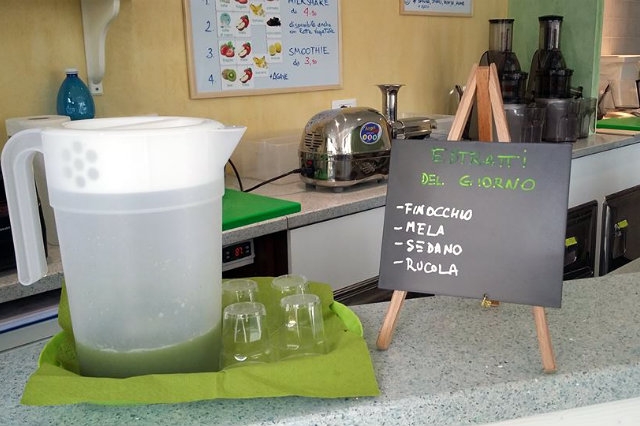 MILKSHAKE
da 4.50
disponibile anche
con latte vegetale
SMOOTHIE
da 3,50
+AGAVE
1
2
3
4
Angel
ESTRATTI
DEL GIORNO
-FINOCCHIO
-MELA
-SEDANO
-RUCOLA